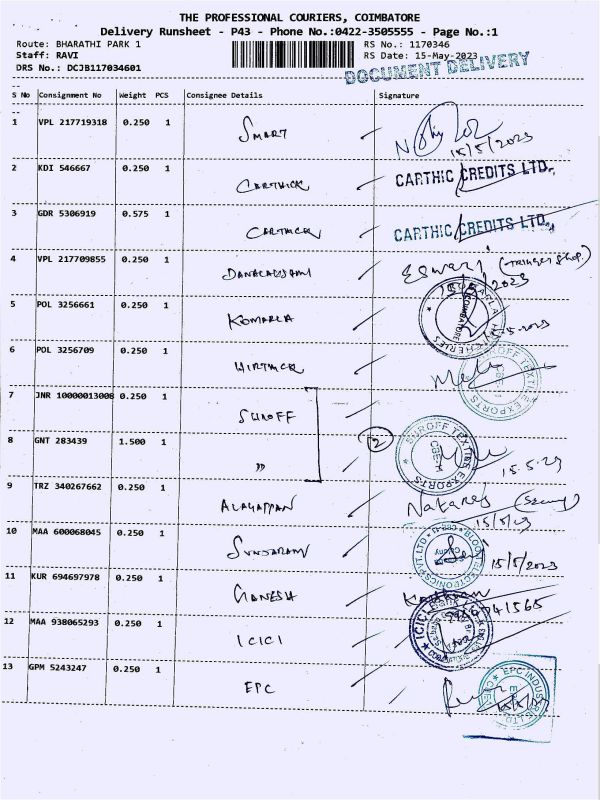 THE PROFESSIONAL COURIERS, COIMBATORE
Delivery Runsheet - P43 - Phone No.:0422-3505555 - Page No.:1
Route: BHARATHI PARK 1 RS No.: 1170346
Staff: RAVI RS Date: 15-May-2023
DRS No.: DCJB117034601
DOCUMENT DELIVERY
S No Consignment No Weight PCS Consignee Details Signature
1 VPL 217719318 0.250 1 SMART
15/5/2023
2 KDI 546667 0.250 1 CARTHICK CARTHIC CREDITS LTD.,
3 GDR 5306919 0.575 1 CARTHICK CARTHIC CREDITS LTD.,
4 VPL 217709855 0.250 1 Eswari
5 POL 3256661 0.250 1 KOMARLA KOMARLA HATCHERIES COIMBATORE
6 POL 3256709 0.250 1 SUROFF TEXTILE EXPORTS
7 JNR 10000013008 0.250 1 SUROFF
8 GNT 283439 1.500 1 " 2 SUROFF TEXTILE EXPORTS CBE-1 15.5.23
9 TRZ 340267662 0.250 1 ALAGAPPAN Nataraj
15/5/23
10 MAA 600068045 0.250 1 SUNDARAM 15/5/2023
11 KUR 694697978 0.250 1 GANESH
12 MAA 938065293 0.250 1 ICICI ICICI
13 GPM 5243247 0.250 1 EPC EPC INDUSTRIE LTD